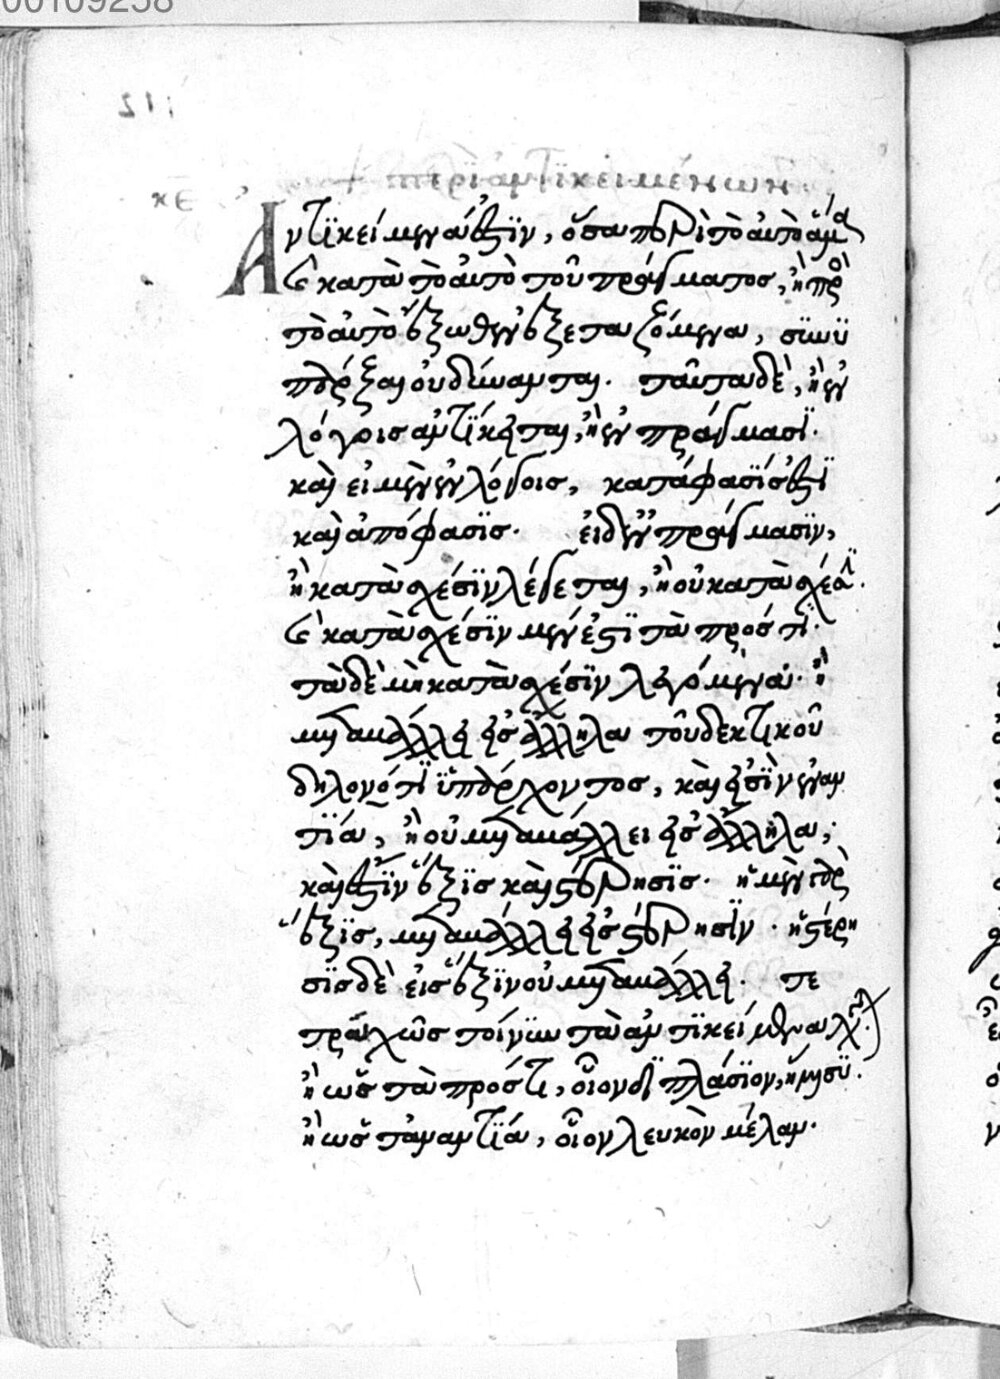 00109258
112
+ περὶ ἀντικειμένων.
κε
Ἀντικείμενά ἐστιν, ὅσα περὶ τὸ αὐτὸ ἅμα
καὶ κατὰ τὸ αὐτὸ τοῦ πράγματος, ἢ πρὸς
τὸ αὐτὸ ἔξωθεν ἐξεταζόμενα, συν
υπάρξαι οὐ δύναμται. ταῦτα δὲ, ἢ ἐν
λόγοις ἀντίκειται, ἢ ἐν πράγμασι.
καὶ εἰ μὲν ἐν λόγοις, κατάφασίς ἐστι
καὶ ἀπόφασις. εἰ δ' ἐν πράγμασιν,
ἢ κατὰ σχέσιν λέγεται, ἢ οὐ κατὰ σχέσιν.
καὶ κατὰ σχέσιν μέν ἐστι τὰ πρός τι.
τὰ δὲ μὴ κατὰ σχέσιν λεγόμενα. ἢ
μεταβάλλει εἰς ἄλληλα τοῦ δεκτικοῦ
δηλονότι ὑπάρχοντος, καὶ εἰσὶν ἐναν
τία, ἢ οὐ μεταβάλλει εἰς ἄλληλα,
καὶ ἔστιν ἕξις καὶ στέρησις. ἡ μὲν γὰρ
ἕξις, μεταβάλλει εἰς στέρησιν. ἡ στέρη
σις δὲ εἰς ἕξιν οὐ μεταβάλλει. τε
τραχῶς τοίνυν τὰ ἀντικείμενα λέγεται.
ἢ ὡς τὰ πρός τι, οἷον διπλάσιον, ἥμισυ.
ἢ ὡς τἀναντία, οἷον λευκὸν μέλαν.